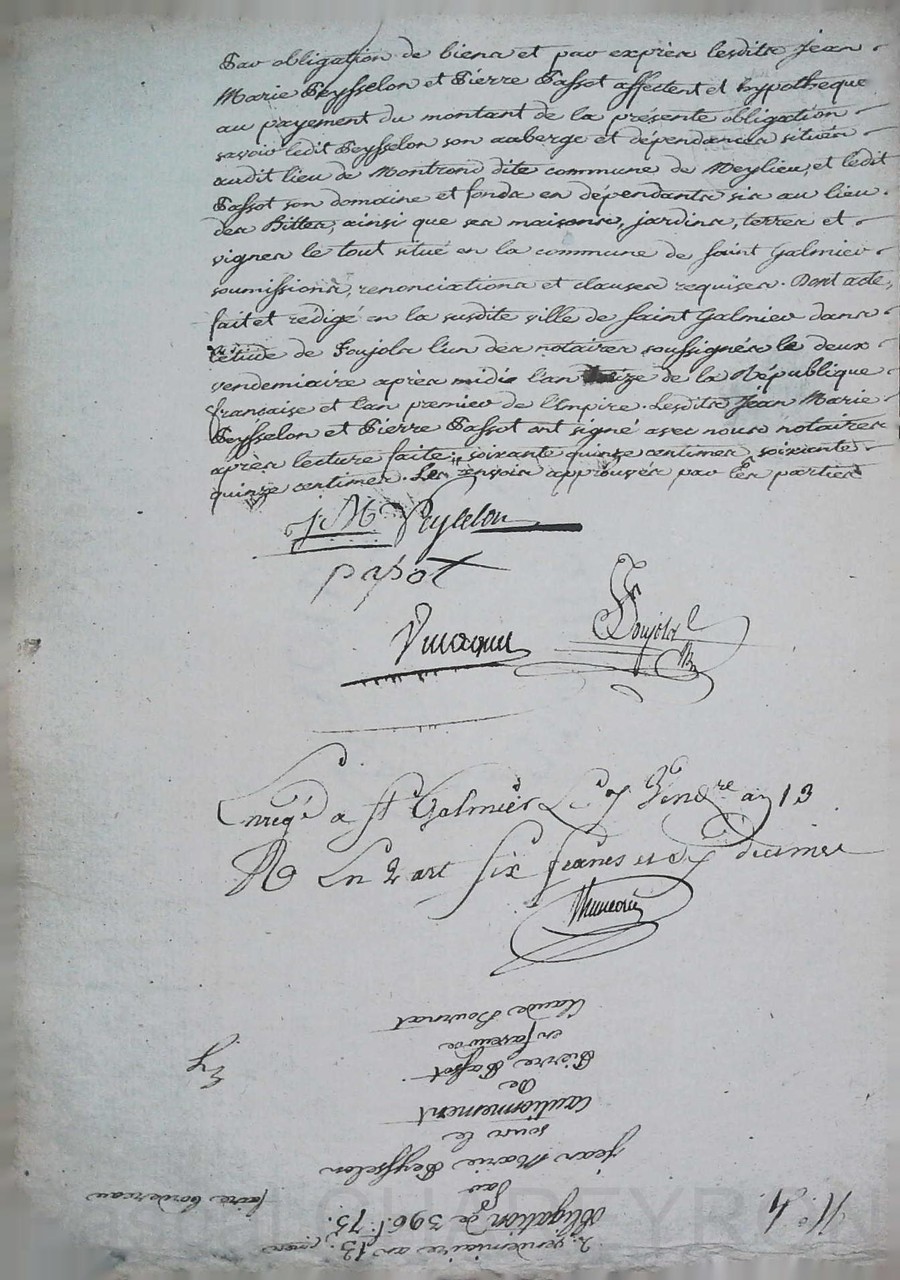 Par obligation de biens et par exprès lesdits Jean
Marie Peysselon et Pierre Passot affectent et hypotheque
au payement du montant de la présente obligation
savoir ledit Peysselon son auberge et dépendances situés
audit lieu de Montrond dite commune de Meylieu, et ledit
Passot son domaine et fonds en dépendants sis au lieu
des Bittes, ainsi que ses maisons, jardins, terres et
vignes le tout situé en la commune de Saint Galmier
soumissions, renonciations et clauses requises. Dont acte,
fait et redigé en la susdite ville de Saint Galmier dans
l'étude de Poujols l'un des notaires soussignés le deux
vendemiaire après midis l'an treize de la République
française et l'an premier de l'Empire. Lesdits Jean Marie
Peysselon et Pierre Passot ont signé avec nous notaires
après lecture faite; soixante quinze centimes, soixante
quinze centimes. Les renvois approuvés par les parties
J M Peysselon
papot
Poujols
Enregé a St Galmier Le 7 Vendre an 13
R Six francs decimes
2. vendemiaire an 13.
Obligation de 396 f. 75.
par
Jean Marie Peysselon
sous le
cautionnement
de
Pierre Passot
en faveur de
Claude Bournat
N.o 4.
faire bordereau